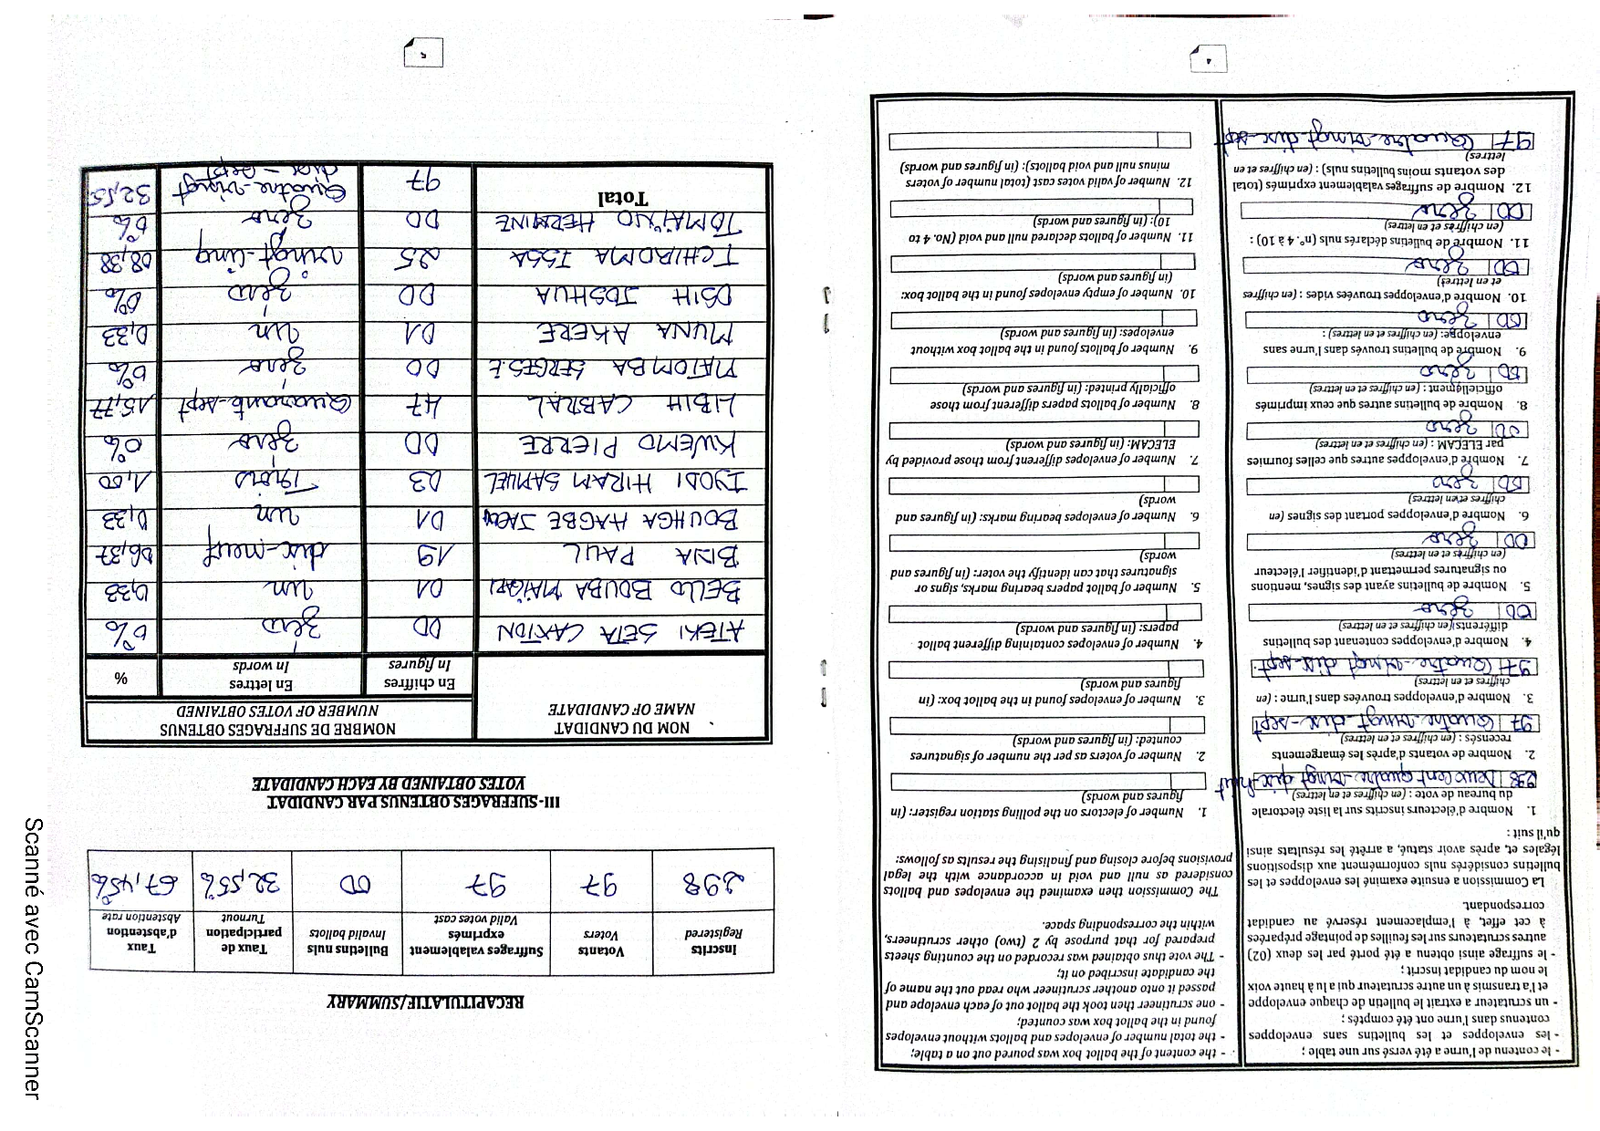 4
- le contenu de l'urne a été versé sur une table ;
- les enveloppes et les bulletins sans enveloppes
contenus dans l'urne ont été comptés ;
- un scrutateur a extrait le bulletin de chaque enveloppe
et l'a transmis à un autre scrutateur qui a lu à haute voix
le nom du candidat inscrit ;
- le suffrage ainsi obtenu a été porté par les deux (02)
autres scrutateurs sur les feuilles de pointage préparées
à cet effet, à l'emplacement réservé au candidat
correspondant.
La Commission a ensuite examiné les enveloppes et les
bulletins considérés nuls conformément aux dispositions
légales et, après avoir statué, a arrêté les résultats ainsi
qu'il suit :
1. Nombre d'électeurs inscrits sur la liste électorale
du bureau de vote : (en chiffres et en lettres)
298 Deux cent quatre-vingt dix-huit
2. Nombre de votants d'après les émargements
recensés : (en chiffres et en lettres)
97 Quatre-vingt dix-sept
3. Nombre d'enveloppes trouvées dans l'urne : (en
chiffres et en lettres)
97 Quatre-vingt dix-sept
4. Nombre d'enveloppes contenant des bulletins
différents (en chiffres et en lettres)
00 zéro
5. Nombre de bulletins ayant des signes, mentions
ou signatures permettant d'identifier l'électeur
(en chiffres et en lettres)
00 zéro
6. Nombre d'enveloppes portant des signes (en
chiffres et en lettres)
00 zéro
7. Nombre d'enveloppes autres que celles fournies
par ELECAM : (en chiffres et en lettres)
00 zéro
8. Nombre de bulletins autres que ceux imprimés
officiellement : (en chiffres et en lettres)
00 zéro
9. Nombre de bulletins trouvés dans l'urne sans
enveloppe: (en chiffres et en lettres) :
00 zéro
10. Nombre d'enveloppes trouvées vides : (en chiffres
et en lettres)
00 zéro
11. Nombre de bulletins déclarés nuls (n°. 4 à 10) :
(en chiffres et en lettres)
00 zéro
12. Nombre de suffrages valablement exprimés (total
des votants moins bulletins nuls) : (en chiffres et en
lettres)
97 Quatre-vingt dix-sept
- the content of the ballot box was poured out on a table;
- the total number of envelopes and ballots without envelopes
found in the ballot box was counted;
- one scrutineer then took the ballot out of each envelope and
passed it onto another scrutineer who read out the name of
the candidate inscribed on it;
- The vote thus obtained was recorded on the counting sheets
prepared for that purpose by 2 (two) other scrutineers,
within the corresponding space.
The Commission then examined the envelopes and ballots
considered as null and void in accordance with the legal
provisions before closing and finalising the results as follows:
1. Number of electors on the polling station register: (in
figures and words)
2. Number of voters as per the number of signatures
counted: (in figures and words)
3. Number of envelopes found in the ballot box: (in
figures and words)
4. Number of envelopes containing different ballot
papers: (in figures and words)
5. Number of ballot papers bearing marks, signs or
signatures that can identify the voter: (in figures and
words)
6. Number of envelopes bearing marks: (in figures and
words)
7. Number of envelopes different from those provided by
ELECAM: (in figures and words)
8. Number of ballots papers different from those
officially printed: (in figures and words)
9. Number of ballots found in the ballot box without
envelopes: (in figures and words)
10. Number of empty envelopes found in the ballot box:
(in figures and words)
11. Number of ballots declared null and void (No. 4 to
10): (in figures and words)
12. Number of valid votes cast (total number of voters
minus null and void ballots): (in figures and words)
5
RECAPITULATIF/SUMMARY
Inscrits Registered Votants Voters Suffrages valablement exprimés Valid votes cast Bulletins nuls Invalid ballots Taux de participation Turnout Taux d'abstention Abstention rate
298 97 97 00 32,55% 67,45%
III- SUFFRAGES OBTENUS PAR CANDIDAT
VOTES OBTAINED BY EACH CANDIDATE
NOM DU CANDIDAT NOMBRE DE SUFFRAGES OBTENUS
NAME OF CANDIDATE NUMBER OF VOTES OBTAINED
En chiffres En lettres %
In figures In words
ATEKI SETA CAXTON 00 zéro 0%
BELLO BOUBA MAÏGARI 01 un 0,33
BIYA PAUL 19 dix-neuf 06,37
BOUHGA HAGBE JACQU 01 un 0,33
IYODI HIRAM SAMUEL 03 Trois 1,00
KWEMO PIERRE 00 zéro 0%
LIBIH CABRAL 47 Quarante-sept 15,77
MATOMBA SERGES E 00 zéro 0%
MUNA AKERE 01 un 0,33
OSIH JOSHUA 00 zéro 0%
TCHIROMA ISSA 25 vingt-cinq 08,38
TOMAÏNO HERMINE 00 zéro 0%
Total 97 Quatre-vingt dix-sept 32,55
Scanné avec CamScanner